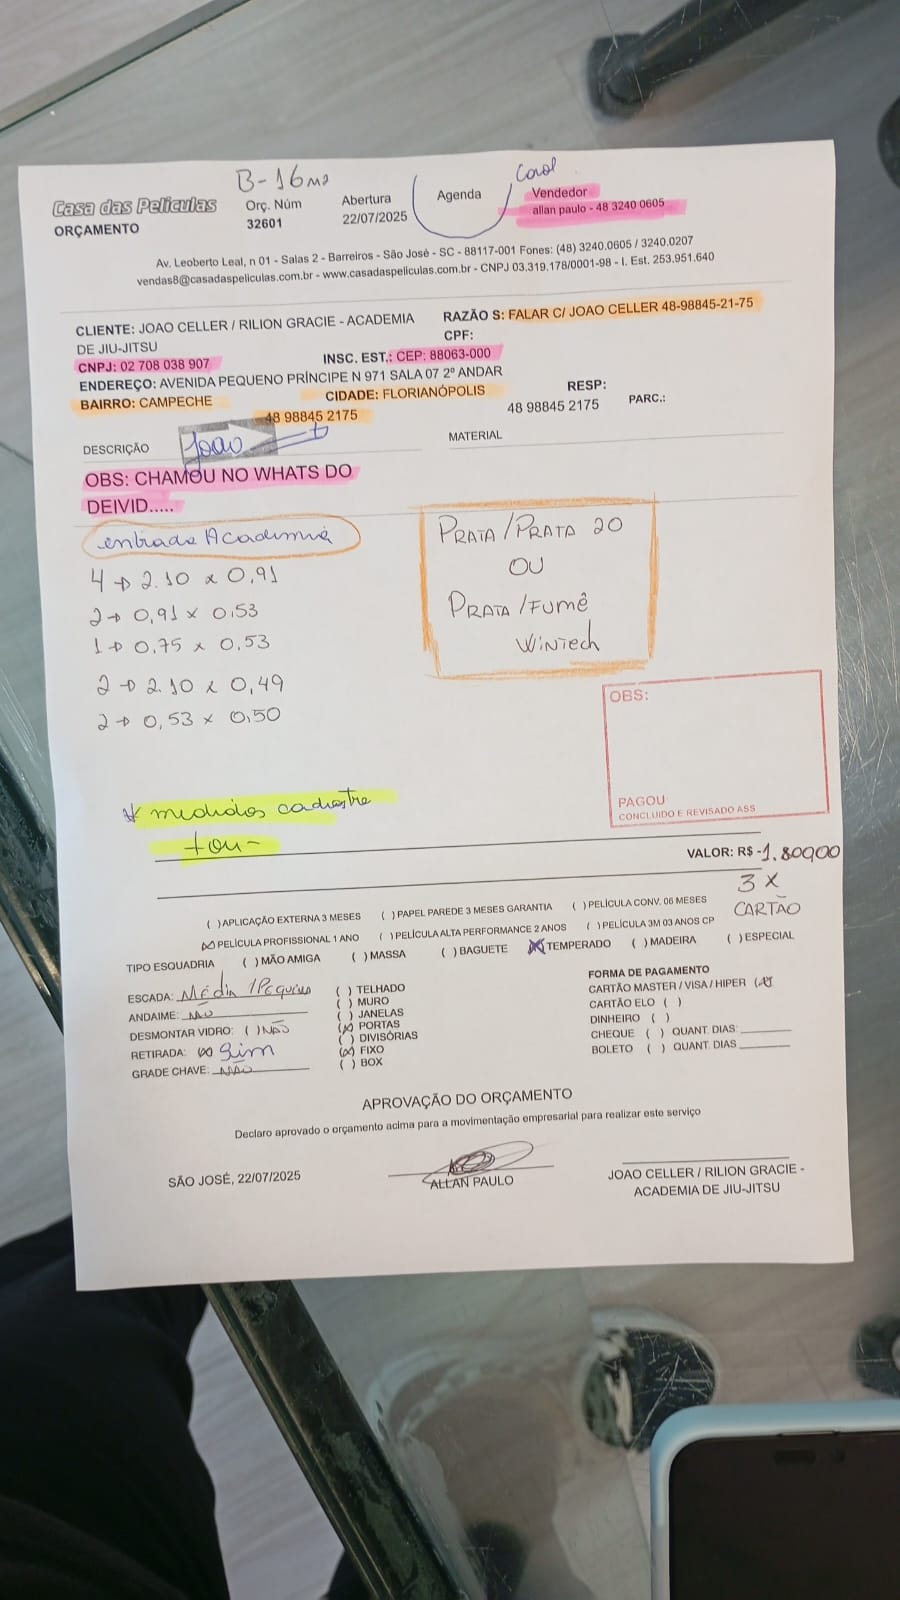 B-16m2
Carol
Casa das Películas
ORÇAMENTO
Orç. Núm
32601
Abertura
22/07/2025
Agenda
Vendedor
allan paulo - 48 3240 0605
Av. Leoberto Leal, n 01 - Salas 2 - Barreiros - São José - SC - 88117-001 Fones: (48) 3240.0605 / 3240.0207
vendas8@casadaspeliculas.com.br - www.casadaspeliculas.com.br - CNPJ 03.319.178/0001-98 - I. Est. 253.951.640
CLIENTE: JOAO CELLER / RILION GRACIE - ACADEMIA
DE JIU-JITSU
RAZÃO S: FALAR C/ JOAO CELLER 48-98845-21-75
CPF:
CNPJ: 02 708 038 907
INSC. EST.: CEP: 88063-000
ENDEREÇO: AVENIDA PEQUENO PRÍNCIPE N 971 SALA 07 2º ANDAR
BAIRRO: CAMPECHE
CIDADE: FLORIANÓPOLIS
RESP:
48 98845 2175
48 98845 2175
PARC.:
DESCRIÇÃO
João
MATERIAL
OBS: CHAMOU NO WHATS DO
DEIVID.....
entrada Academia
4 → 2.10 x 0,91
2 → 0,91 x 0,53
1 → 0,75 x 0,53
2 → 2.10 x 0,49
2 → 0,53 x 0,50
PRATA/PRATA 20
OU
PRATA/FUMÊ
WINTECH
OBS:
PAGOU
CONCLUIDO E REVISADO ASS
* medidas cadastre
tou-
VALOR: R$ -1.800,00
3 X
CARTÃO
( )APLICAÇÃO EXTERNA 3 MESES ( )PAPEL PAREDE 3 MESES GARANTIA ( )PELÍCULA CONV. 06 MESES
(X)PELÍCULA PROFISSIONAL 1 ANO ( )PELÍCULA ALTA PERFORMANCE 2 ANOS ( )PELÍCULA 3M 03 ANOS CP
TIPO ESQUADRIA ( )MÃO AMIGA ( )MASSA ( )BAGUETE (X)TEMPERADO ( )MADEIRA ( )ESPECIAL
ESCADA: Média / Pequena
ANDAIME: NÃO
DESMONTAR VIDRO: ( )NÃO
RETIRADA: (X) Sim
GRADE CHAVE: NÃO
( ) TELHADO
( ) MURO
( ) JANELAS
(X) PORTAS
( ) DIVISÓRIAS
(X) FIXO
( ) BOX
FORMA DE PAGAMENTO
CARTÃO MASTER / VISA / HIPER (X)
CARTÃO ELO ( )
DINHEIRO ( )
CHEQUE ( ) QUANT. DIAS:
BOLETO ( ) QUANT. DIAS
APROVAÇÃO DO ORÇAMENTO
Declaro aprovado o orçamento acima para a movimentação empresarial para realizar este serviço
SÃO JOSÉ, 22/07/2025
ALLAN PAULO
JOAO CELLER / RILION GRACIE -
ACADEMIA DE JIU-JITSU